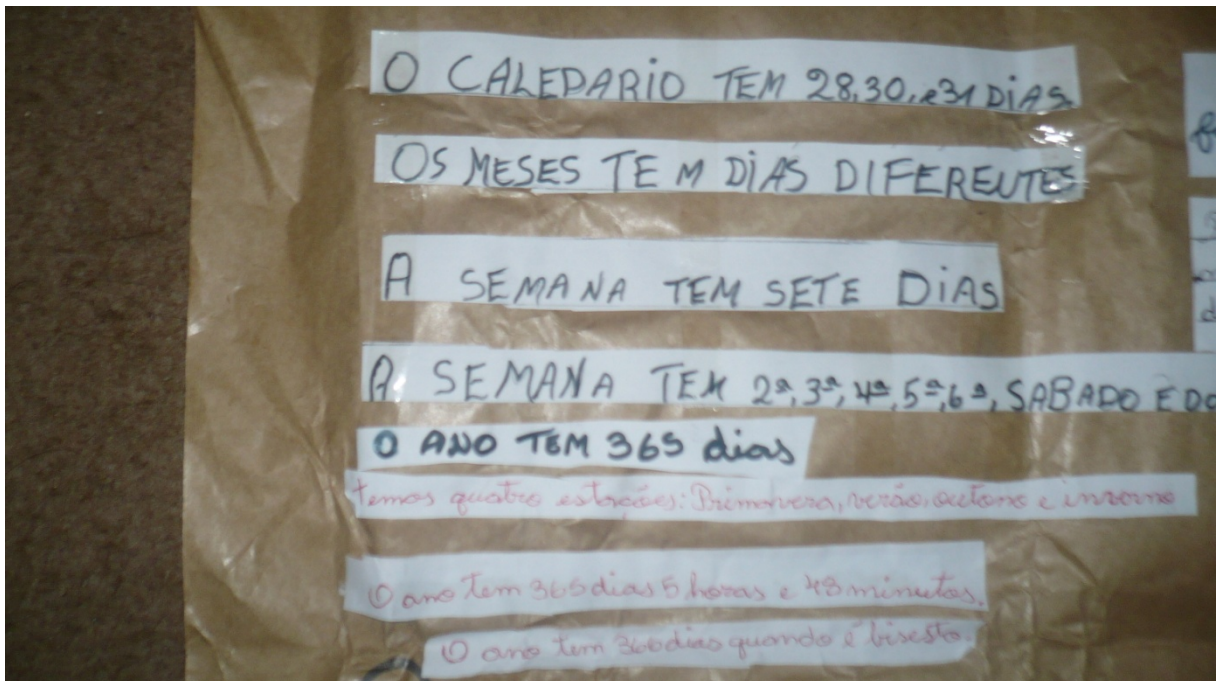 O CALEDARIO TEM 28,30, e 31 DIAS
OS MESES TEM DIAS DIFERENTES
A SEMANA TEM SETE DIAS
A SEMANA TEM 2ª, 3ª, 4ª, 5ª, 6ª, SABADO E DO
O ANO TEM 365 dias
temos quatro estações: Primavera, verão, outono e inverno
O ano tem 365 dias 5 horas e 48 minutos.
O ano tem 366 dias quando é bisesto.